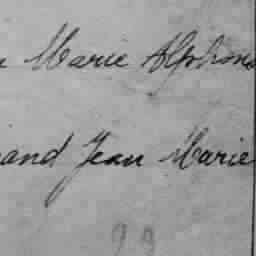 Marie Alphons
and Jean Marie
99